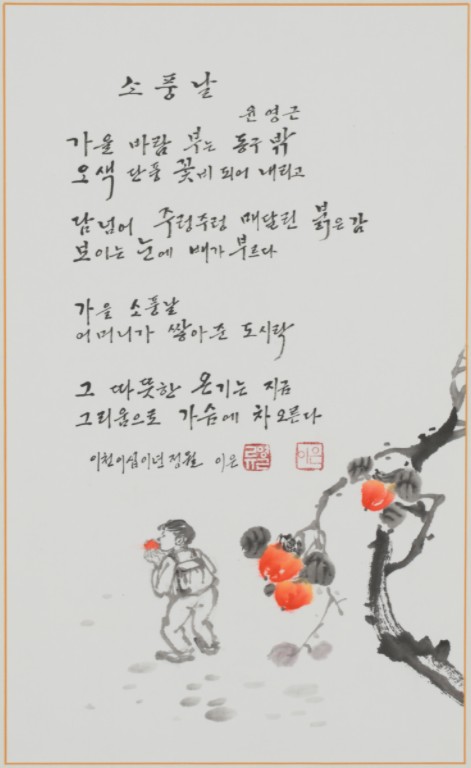 소풍날
윤영근
가을 바람 부는 동구 밖
오색 단풍 꽃비 되어 내리고
담 넘어 주렁주렁 매달린 붉은 감
보이는 눈에 배가 부르다
가을 소풍날
어머니가 쌓아준 도시락
그 따뜻한 온기는 지금
그리움으로 가슴에 차오른다
이천이십이년 정월 이은